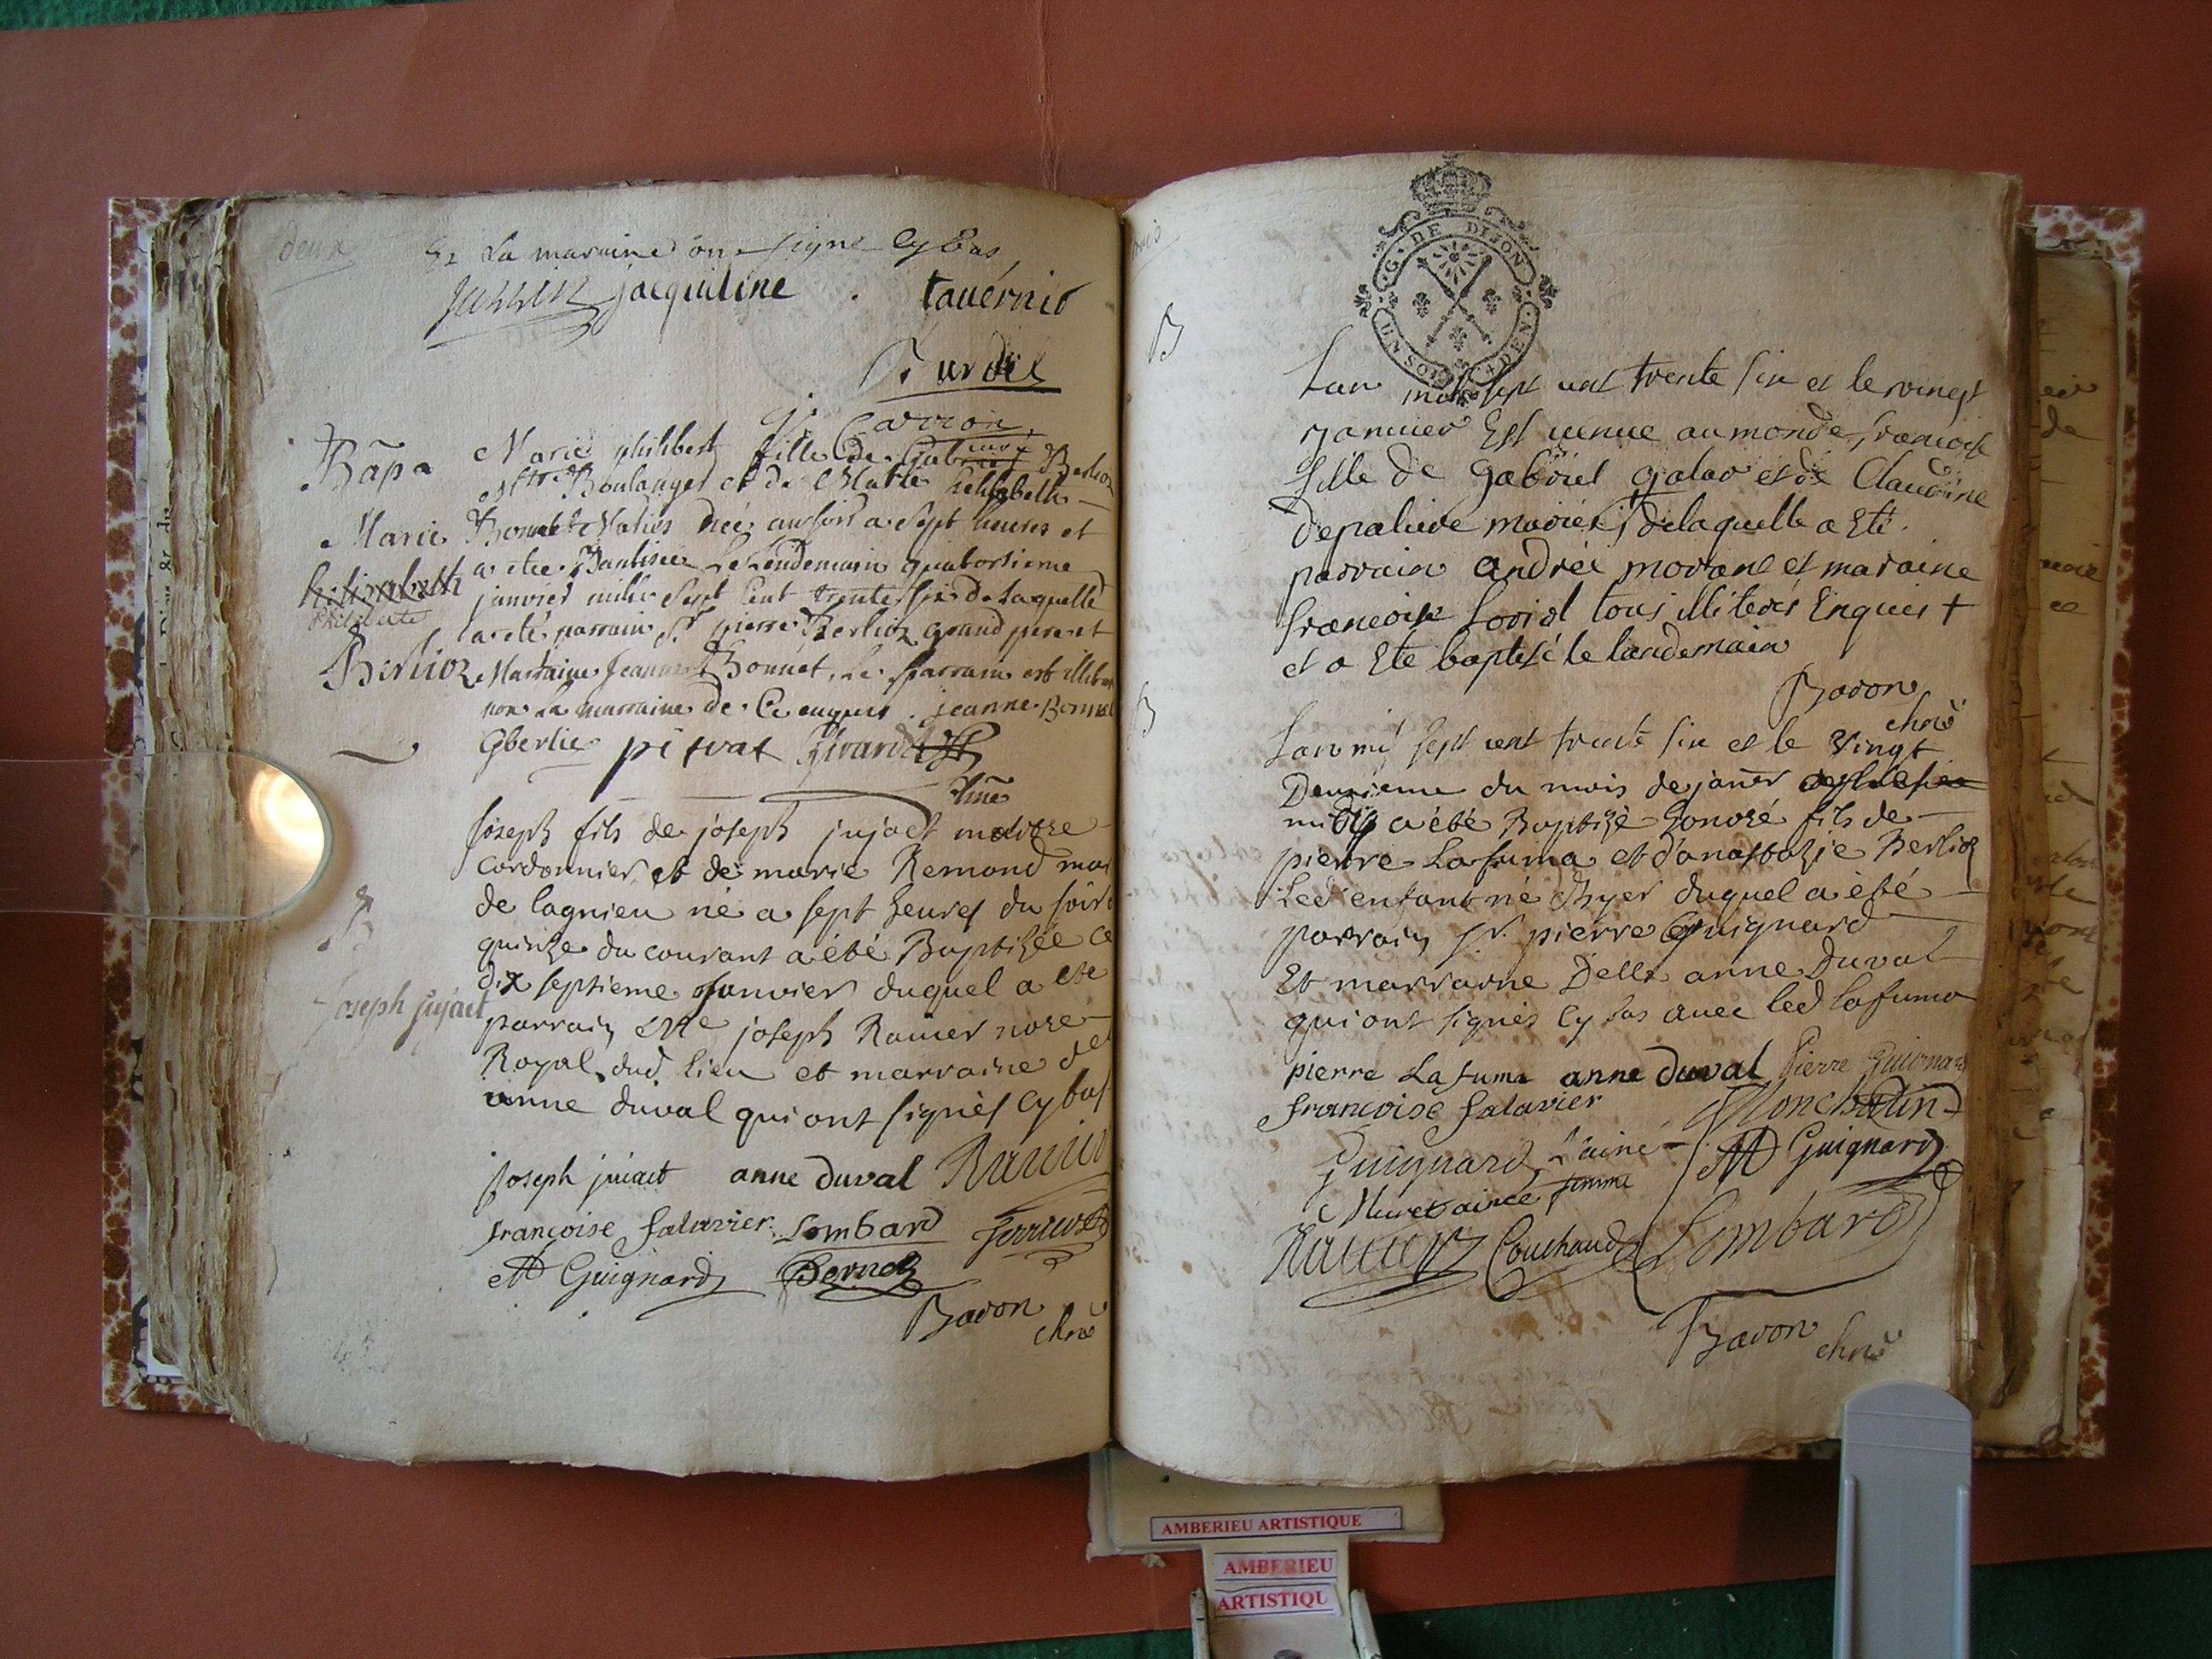 deux
Et La maraine ont signe Cy bas
jacqueline tavernie
Burdel
Carron
curé
Bap.
Marie philibert fille de Gabriel Berlioz
Mtre Boulanger et de Marie helisabeth
Marie
Bonnet Maries née au soir a sept heures et
a etee Bautisee Le Lendemain quatorsieme
janvier mille sept Cent trente six de Laquelle
a eté parrain Sr pierre Berlioz grand pere et
Berlioz
Marraine Jeanne Bonnet, Le parrain est illiteré
non La marraine de Ce enquis jeanne Bonnet
Gberlie pitrat Girard
Joseph fils de joseph jujact maitre
Cordonnier et de marie Remond mar
de lagnieu né a sept heures du soir
quinze du courant a été Baptizée ce
dix septieme Janvier duquel a ete
Joseph jujact
parrain Mte joseph Ravier nore
Royal dud. lieu et marraine de
anne duval qui ont signés cy bas
B
Joseph juiact anne duval Ravier
francoise salavier Lombard
M Guignard Bornet
Baron
chne
G. DE DIJON
UN SOL 4 DEN
B
Lan mil sept cent trente six et le vingt
janvier Est venue au monde francoise
fille de Gabriel galav et de Claudine
depaliere mariés, de laquelle a Eté
parrain andréi morane et maraine
francoise Loriol tous illiterés Enquis +
et a Eté baptisé le landemain
Baron
chne
B
Lan mil sept cent trente six et le vingt
Deuxieme du mois de janer
midy a été Baptizé honoré fils de
pierre Lafuma et d'anastazie Berlioz
Led enfant né Hyer duquel a été
parrain Sr. pierre Guignard
Et marraine Delle anne Duval
qui ont signés Cy bas avec led Lafuma
pierre Lafuma anne duval Pierre Guignard
francoise salavier Monchatin
Guignard L'ainé M Guignard
Muret ainee femme
Ravier Couchaud Lombard
Baron
chne
AMBERIEU ARTISTIQUE
AMBERIEU
ARTISTIQU